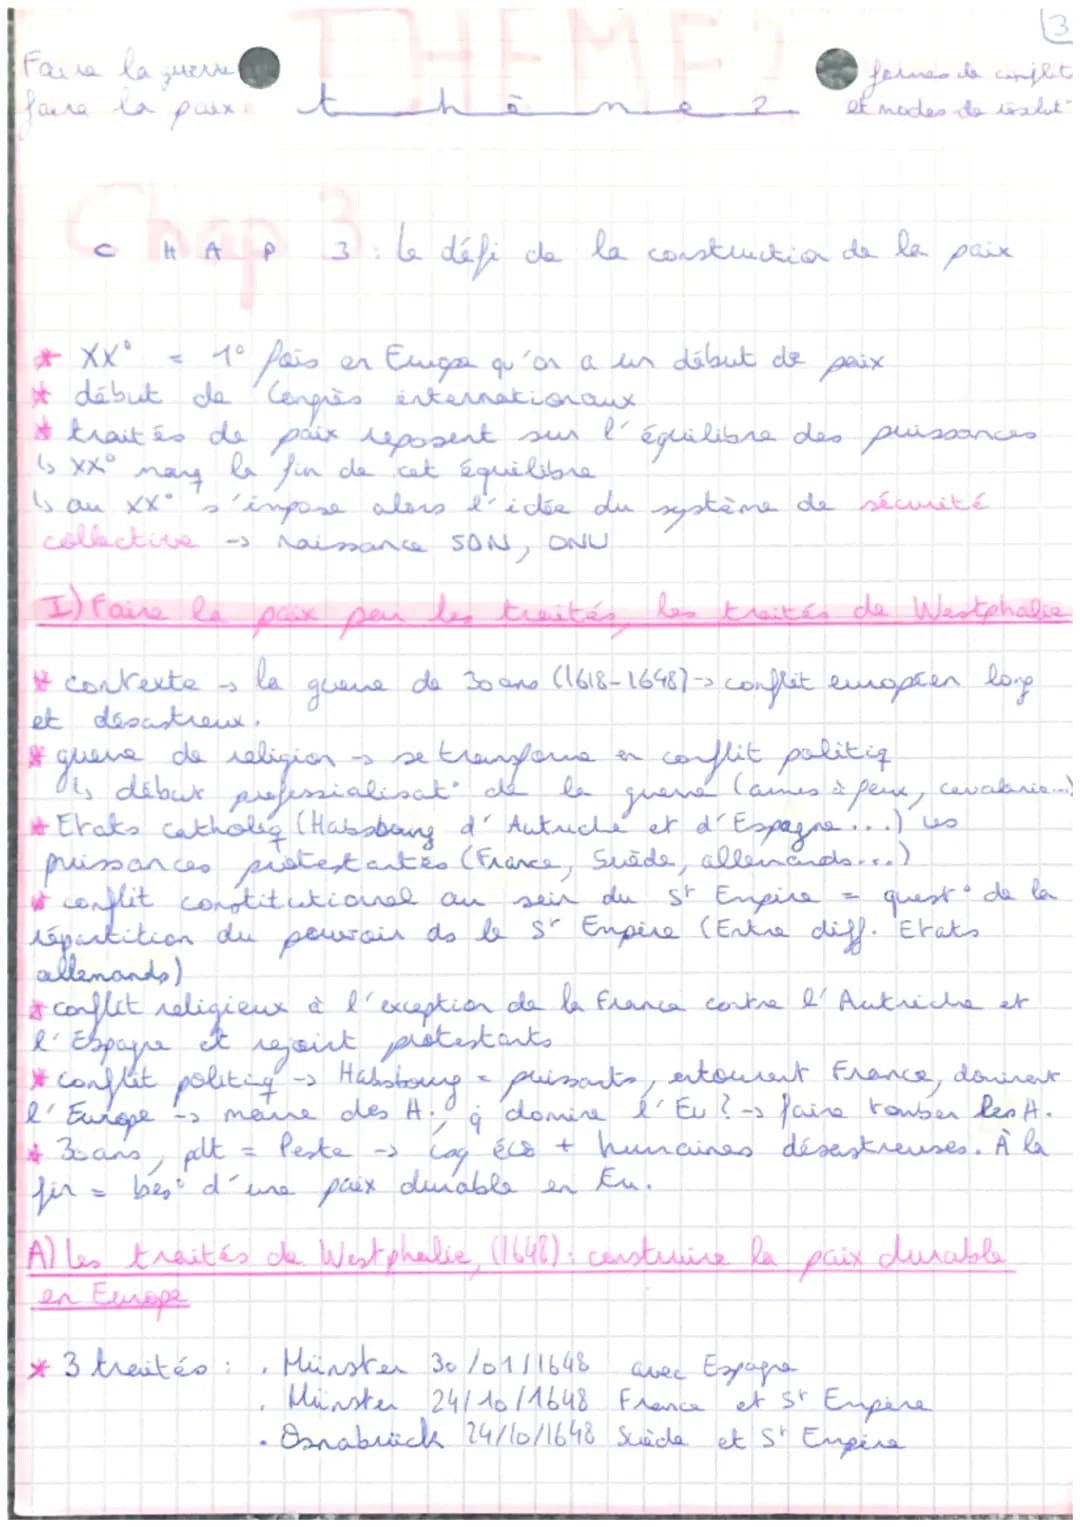 3
Faire la guerre
faire la paix.
THEME 2
thème 2
formes de conflit
et modes de résolut°
Chap 3
CHAP 3 : le défi de la construction de la paix
* XX° = 1° fois en Europe qu'on a un début de paix
* début de Congrès internationaux
* traités de paix reposent sur l'équilibre des puissances
↳ XX° marq la fin de cet équilibre
↳ au XX° s'impose alors l'idée du système de sécurité
collective -> naissance SDN, ONU
I) Faire la paix par les traités, les traités de Westphalie
* contexte -> la guerre de 30 ans (1618-1648) -> conflit européen long
et désastreux.
* guerre de religion -> se transforme en conflit politiq
↳ début professialisat° de la guerre (armes à feux, cavalerie...)
* Etats catholiq (Habsbourg d'Autriche et d'Espagne...) vs
puissances protestantes (France, Suède, allemands...)
* conflit constitutionnel au sein du St Empire = quest° de la
répartition du pouvoir ds le St Empire (Entre diff. Etats
allemands)
* conflit religieux à l'exception de la France contre l'Autriche et
l'Espagne et rejoint protestants
* conflit politiq -> Habsbourg = puissants, entourent France, dominent
l'Europe -> mener des H., q domine l'Eu ? -> faire tomber les H.
* 30 ans, plt = Peste -> csq éco + humaines désastreuses. À la
fin = bes° d'une paix durable en Eu.
A) les traités de Westphalie, (1648) : construire la paix durable
en Europe
* 3 traités : . Münster 30/01/1648 avec Espagne
. Münster 24/10/1648 France et St Empire
. Osnabrück 24/10/1648 Suède et St Empire